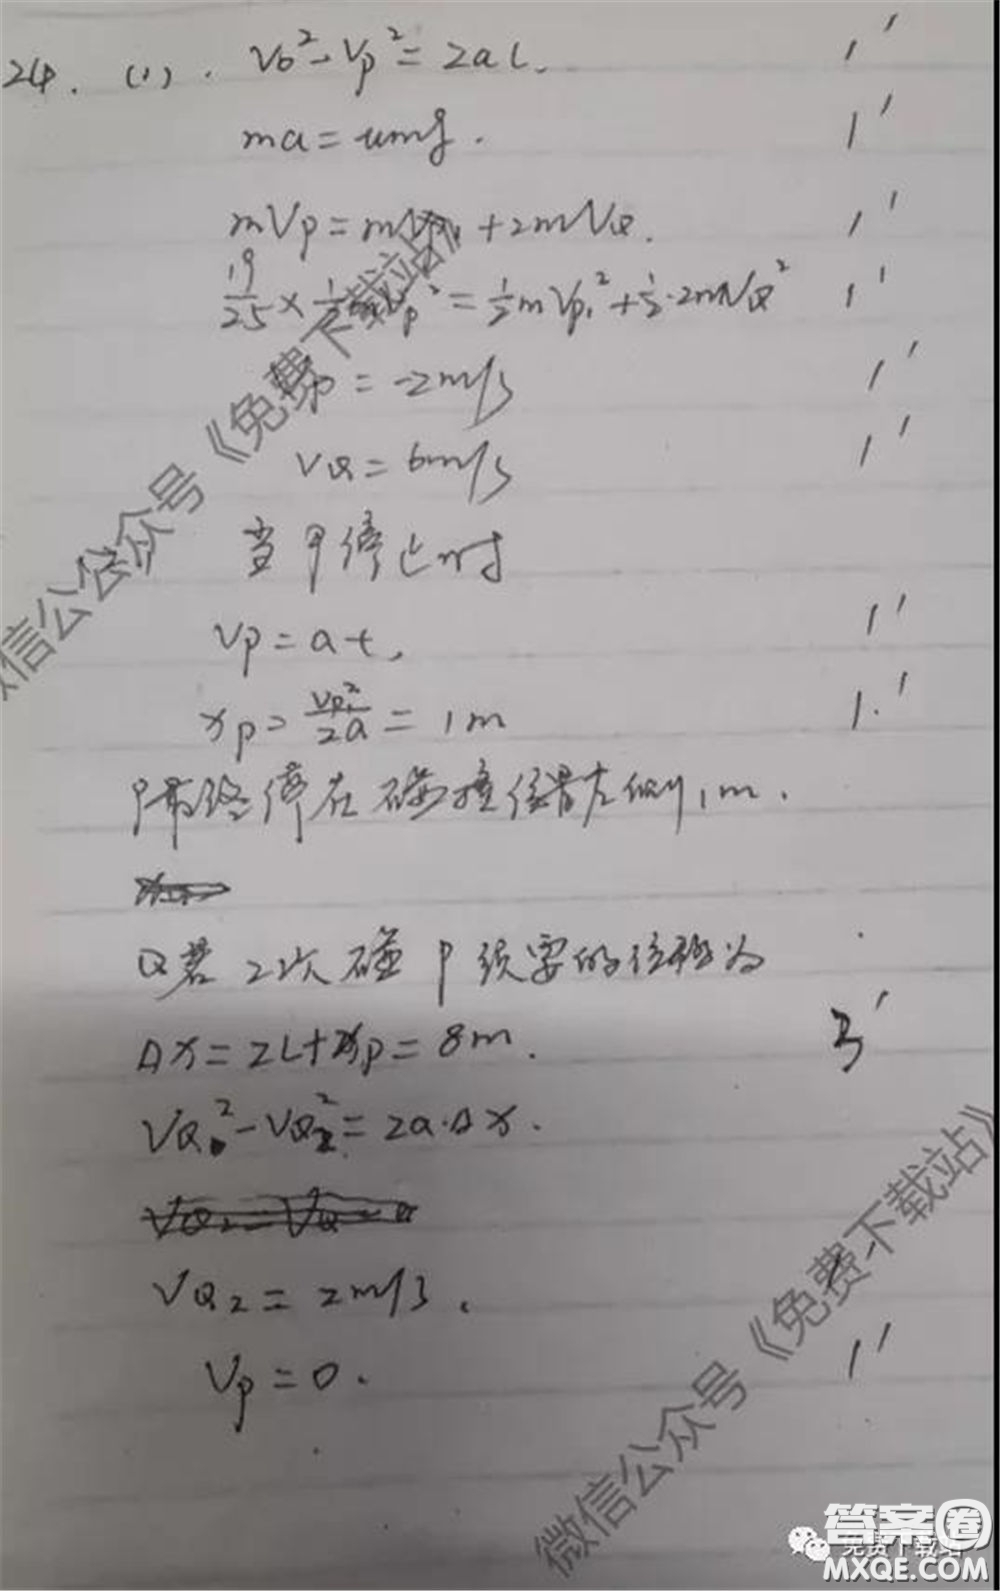 24. (1). V₀² - Vp² = 2aL. 1'
ma = umg. 1'
mVp = mVp₁ + 2mVQ. 1'
19/25 × 1/2 Vp² = 1/2 mVp₁² + 1/2·2mVQ² 1'
= -2m/s 1'
VQ = 6m/s 1'
当P停止时
Vp = at, 1'
xp = Vp₁²/2a = 1m 1.'
P最终停在碰撞位置左侧1m.
Q若2次碰P须要的位移为
Δx = 2L + xp = 8m. 3'
VQ² - VQ₂² = 2a·Δx.
VQ₂ = 2m/s.
Vp = 0. 1'
微信公众号《免费下载站》
微信公众号《免费下载站》
答案圈
免费下载站
MXQE.COM